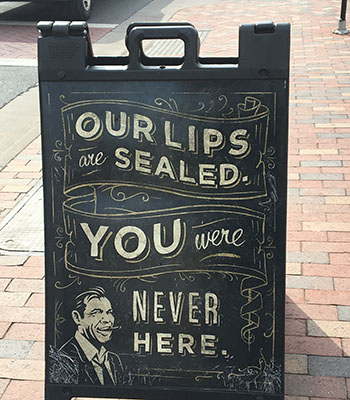 OUR LIPS
are SEALED.
YOU were
NEVER
HERE.